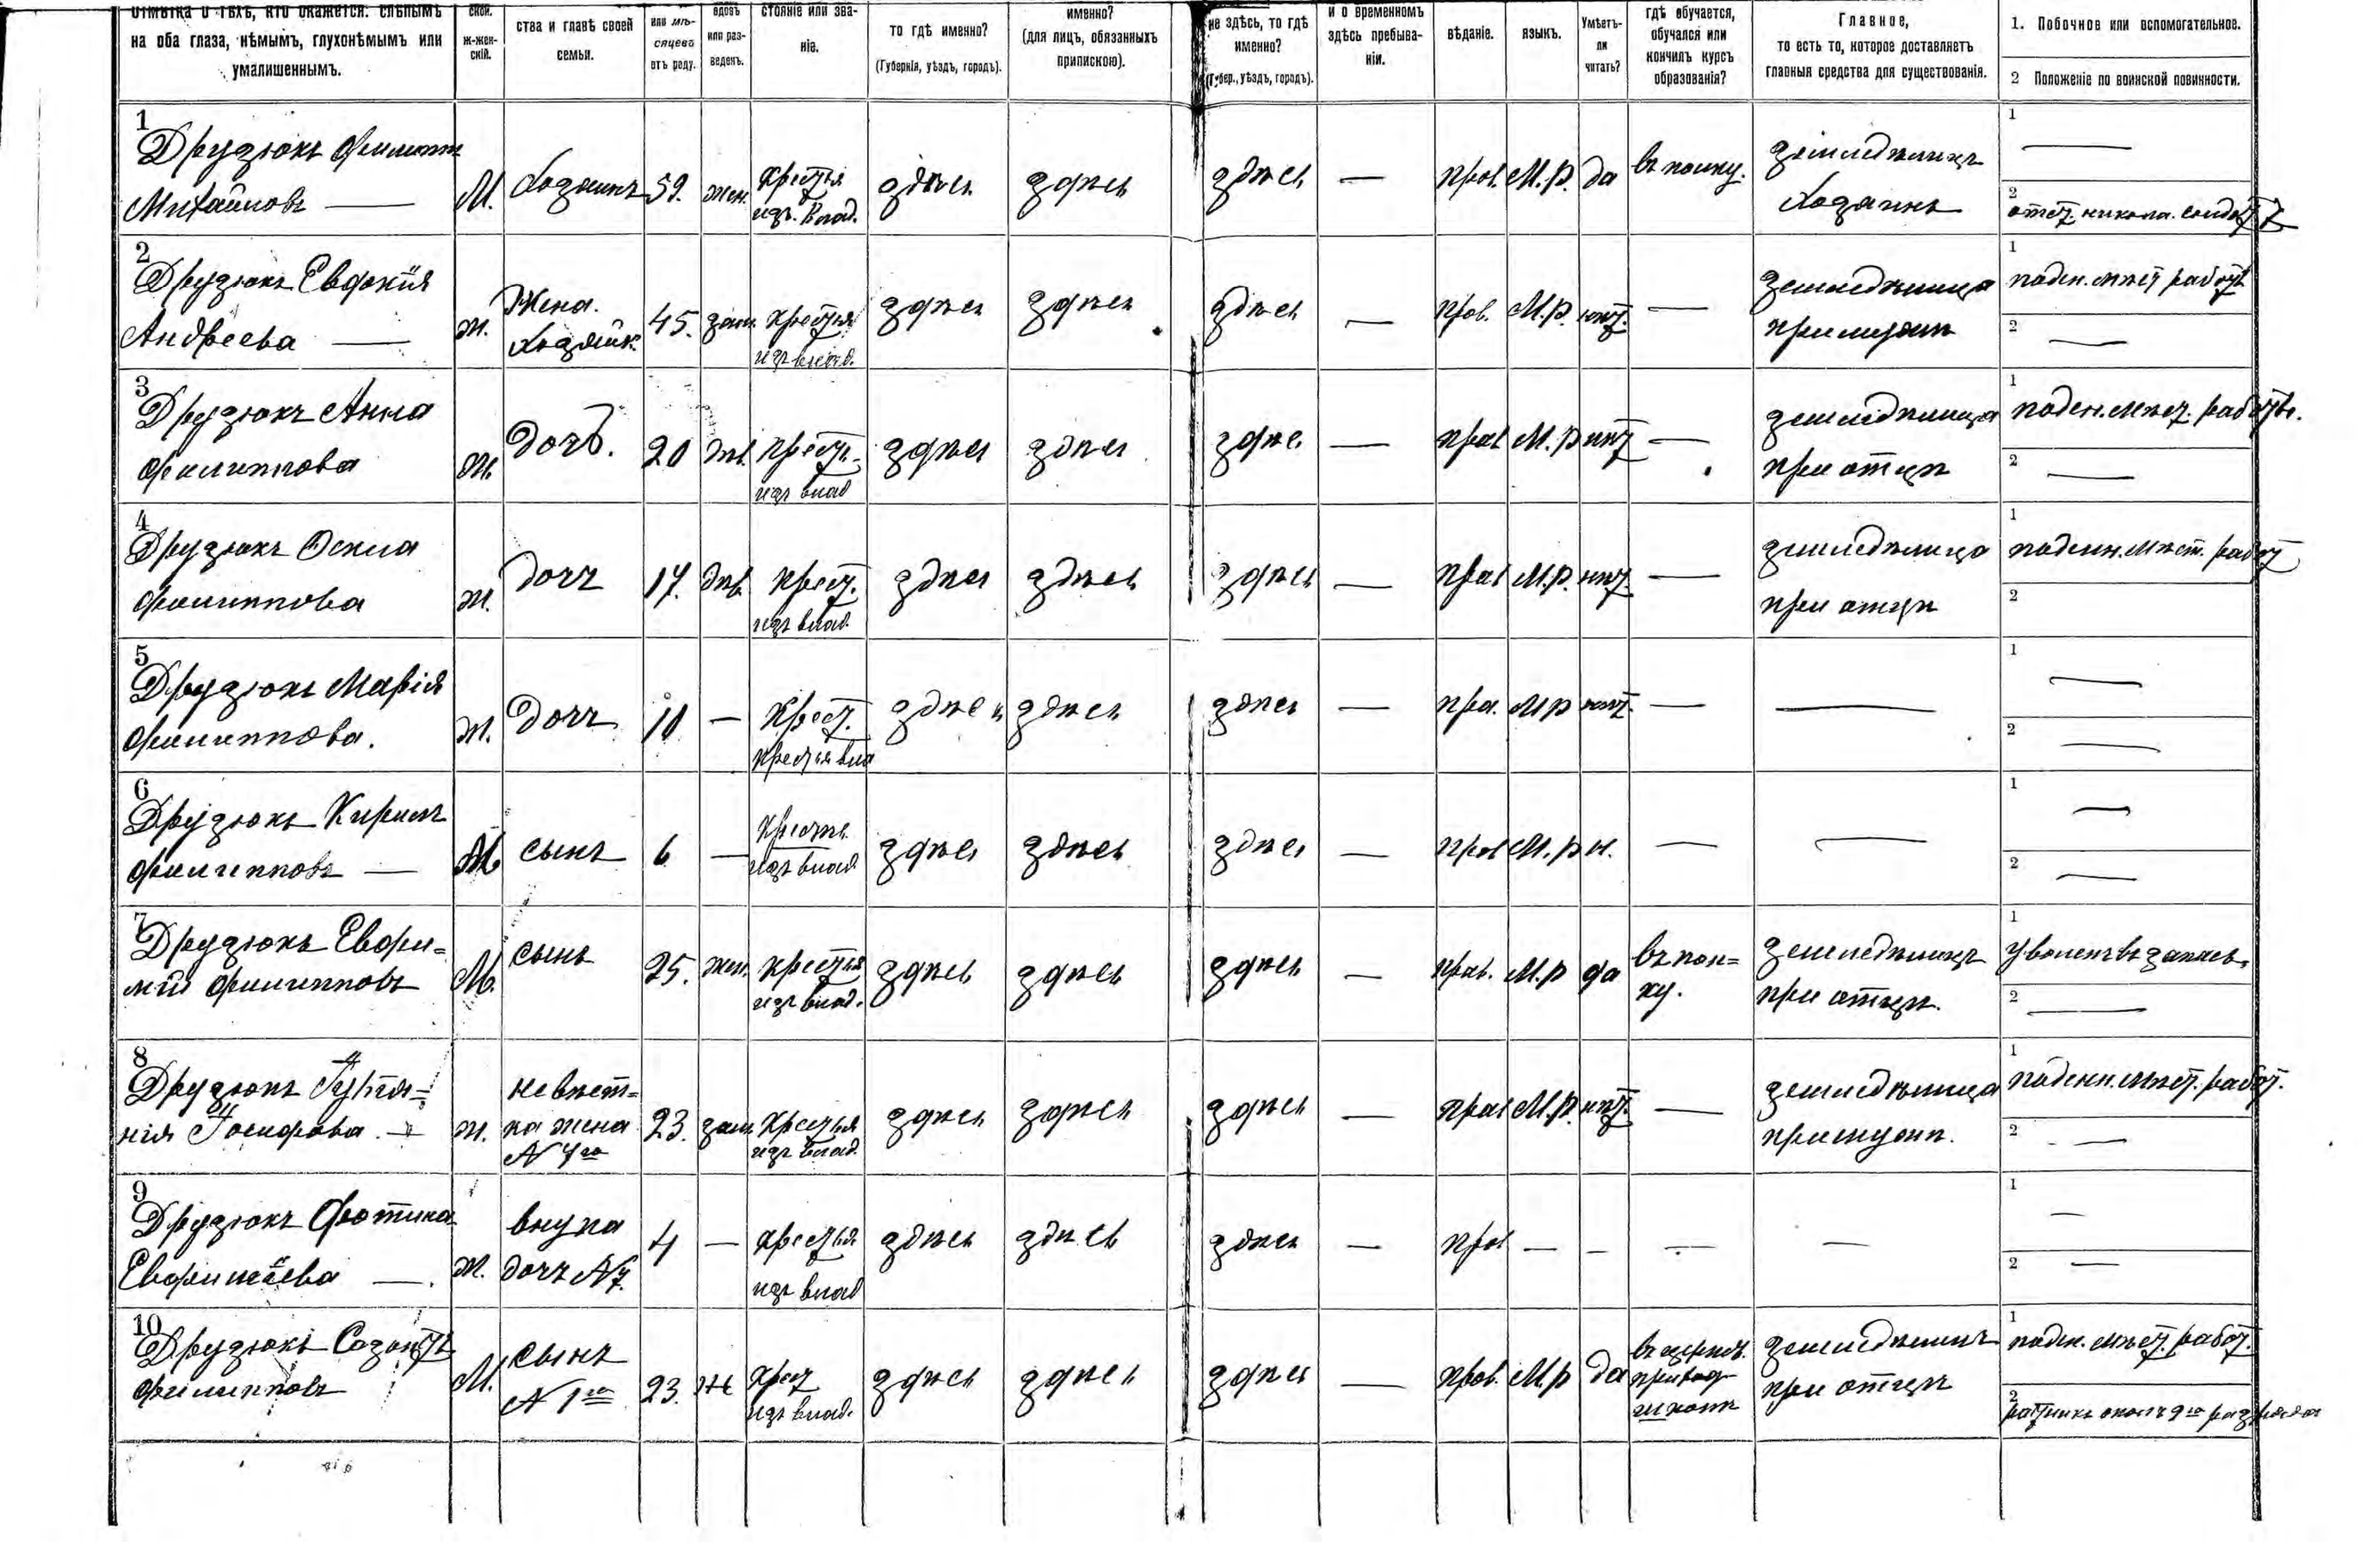 отмѣтка о тѣхъ, кто окажется: слѣпымъ
на оба глаза, нѣмымъ, глухонѣмымъ или
умалишеннымъ.
ской.
ж-жен-
скій.
ства и главѣ своей
семьи.
или мѣ-
сяцевъ
отъ роду.
вдовъ
или раз-
веденъ.
стояніе или зва-
ніе.
то гдѣ именно?
(Губернія, уѣздъ, городъ).
именно?
(для лицъ, обязанныхъ
припискою).
не здѣсь, то гдѣ
именно?
(Губер., уѣздъ, городъ).
и о временномъ
здѣсь пребыва-
ніи.
вѣданіе.
языкъ.
Умѣетъ-
ли
читать?
гдѣ обучается,
обучался или
кончилъ курсъ
образованія?
Главное,
то есть то, которое доставляетъ
главныя средства для существованія.
1. Побочное или вспомогательное.
2 Положеніе по воинской повинности.
1
Друзюкъ Филиппъ
Михайловъ —
М.
Хозяинъ
59.
жен.
крестья
изъ. влад.
здѣсь
здѣсь
здѣсь
—
прав.
М.р.
да
въ полку.
земледѣлецъ
Хозяинъ
1 —
2
отст. никола. солдат
2
Друзюкъ Евдокія
Андреева —
ж.
Жена.
Хозяйк.
45.
зам.
крестья
изъ влад.
здѣсь
здѣсь
здѣсь
—
прав.
М.р.
нѣт.
—
земледѣлица
при мужѣ
1
поден. мѣст работ
2 —
3
Друзюкъ Анна
Филиппова
ж.
дочь.
20
дѣв.
кресть.
изъ влад
здѣсь
здѣсь
здѣсь
—
прав
М.р
нѣт
—
земледѣлица
при отцѣ
1
поден. мѣст. работы.
2 —
4
Друзюкъ
Филиппова
ж.
дочь
17.
дѣв.
крест.
изъ влад.
здѣсь
здѣсь
здѣсь
—
прав
М.р.
нѣт.
—
земледѣлица
при отцѣ
1
поденн. мѣст. работ
2
5
Друзюкъ Марія
Филиппова.
ж.
дочь
10
—
крест.
крестья вла
здѣсь
здѣсь
здѣсь
—
пра.
М р
нѣт.
—
—
1 —
2 —
6
Друзюкъ Кирилъ
Филипповъ —
М
сынъ
6
—
крестья
изъ влад
здѣсь
здѣсь
здѣсь
—
прав
М.р
н.
—
—
1 —
2 —
7
Друзюкъ Евфи=
мій Филипповъ
М.
сынъ
25.
жен.
крестья
изъ влад.
здѣсь
здѣсь
здѣсь
—
прав.
М.р
да
въ пол=
ку.
земледѣлецъ
при отцѣ.
1
уволенъ въ запасъ.
2 —
8
Друзюкъ
нія Іосифова. —
ж.
невѣст=
ка жена
N 7го
23.
зам
крестья
изъ влад.
здѣсь
здѣсь
здѣсь
—
прав
М.р.
нѣт.
—
земледѣлица
при мужѣ.
1
поденн. мѣст. работ.
2 —
9
Друзюкъ Фотина
Евфиміева —.
ж.
внука
дочь N 7.
4
—
крестья
изъ влад
здѣсь
здѣсь
здѣсь
—
прав
—
—
—
—
1 —
2 —
10
Друзюкъ Созонтъ
Филипповъ
М.
сынъ
N 1го
23.
крест
изъ влад.
здѣсь
здѣсь
здѣсь
—
прав.
М.р
да
въ церков.
приход
школѣ
земледѣлецъ
при отцѣ
1
поден. мѣст. работ.
2
ратникъ ополч 2го разряда